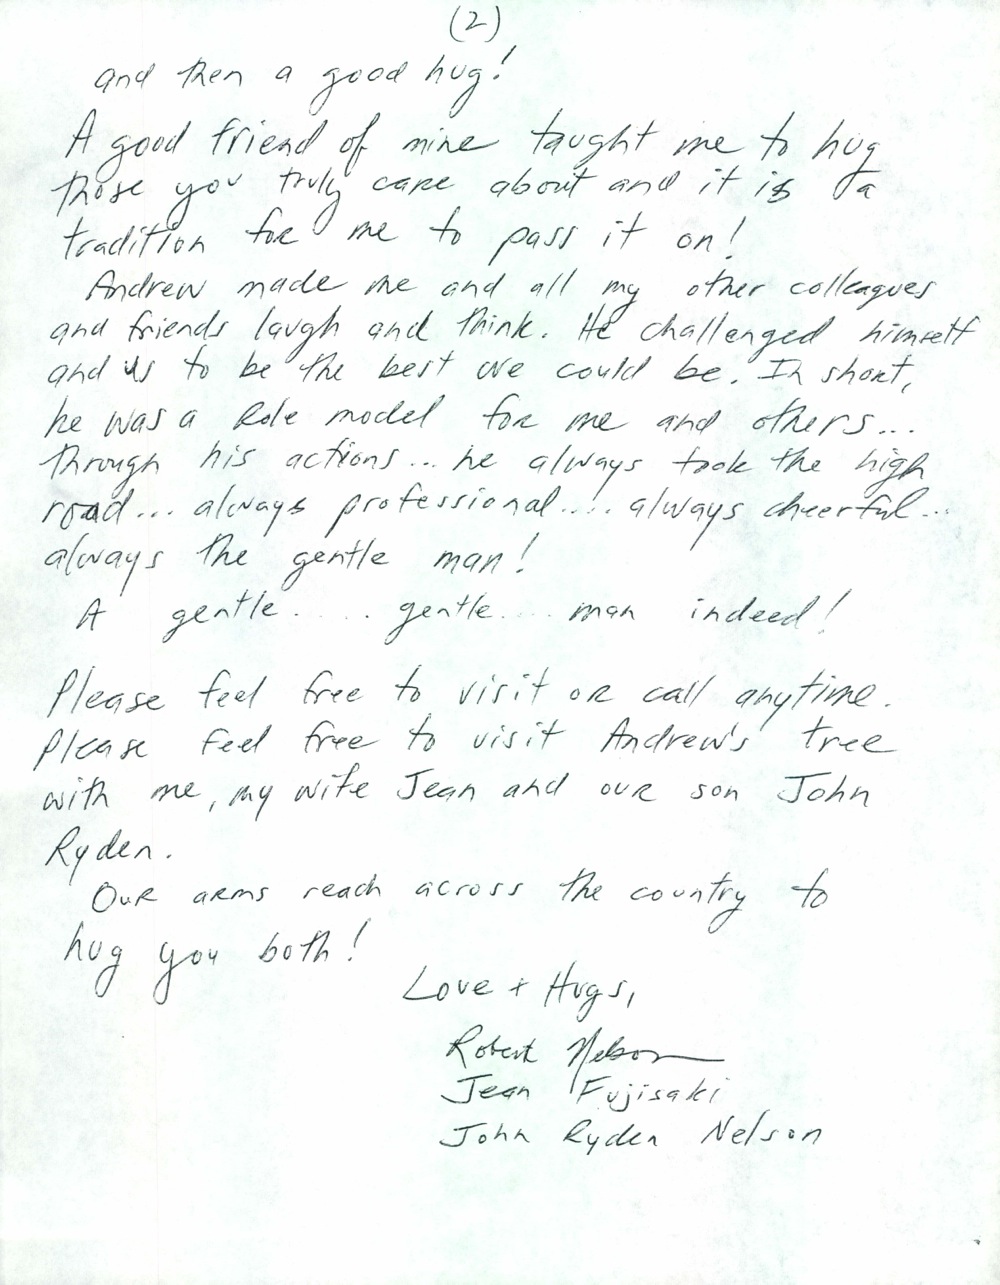 (2)
and then a good hug!
A good friend of mine taught me to hug
those you truly care about and it is a
tradition for me to pass it on!
Andrew made me and all my other colleagues
and friends laugh and think. He challenged himself
and us to be the best we could be. In short,
he was a role model for me and others...
through his actions... he always took the high
road... always professional.... always cheerful...
always the gentle man!
A gentle..... gentle.... man indeed!
Please feel free to visit or call anytime.
Please feel free to visit Andrew's tree
with me, my wife Jean and our son John
Ryden.
Our arms reach across the country to
hug you both!
Love + Hugs,
Robert Nelson
Jean Fujisaki
John Ryden Nelson